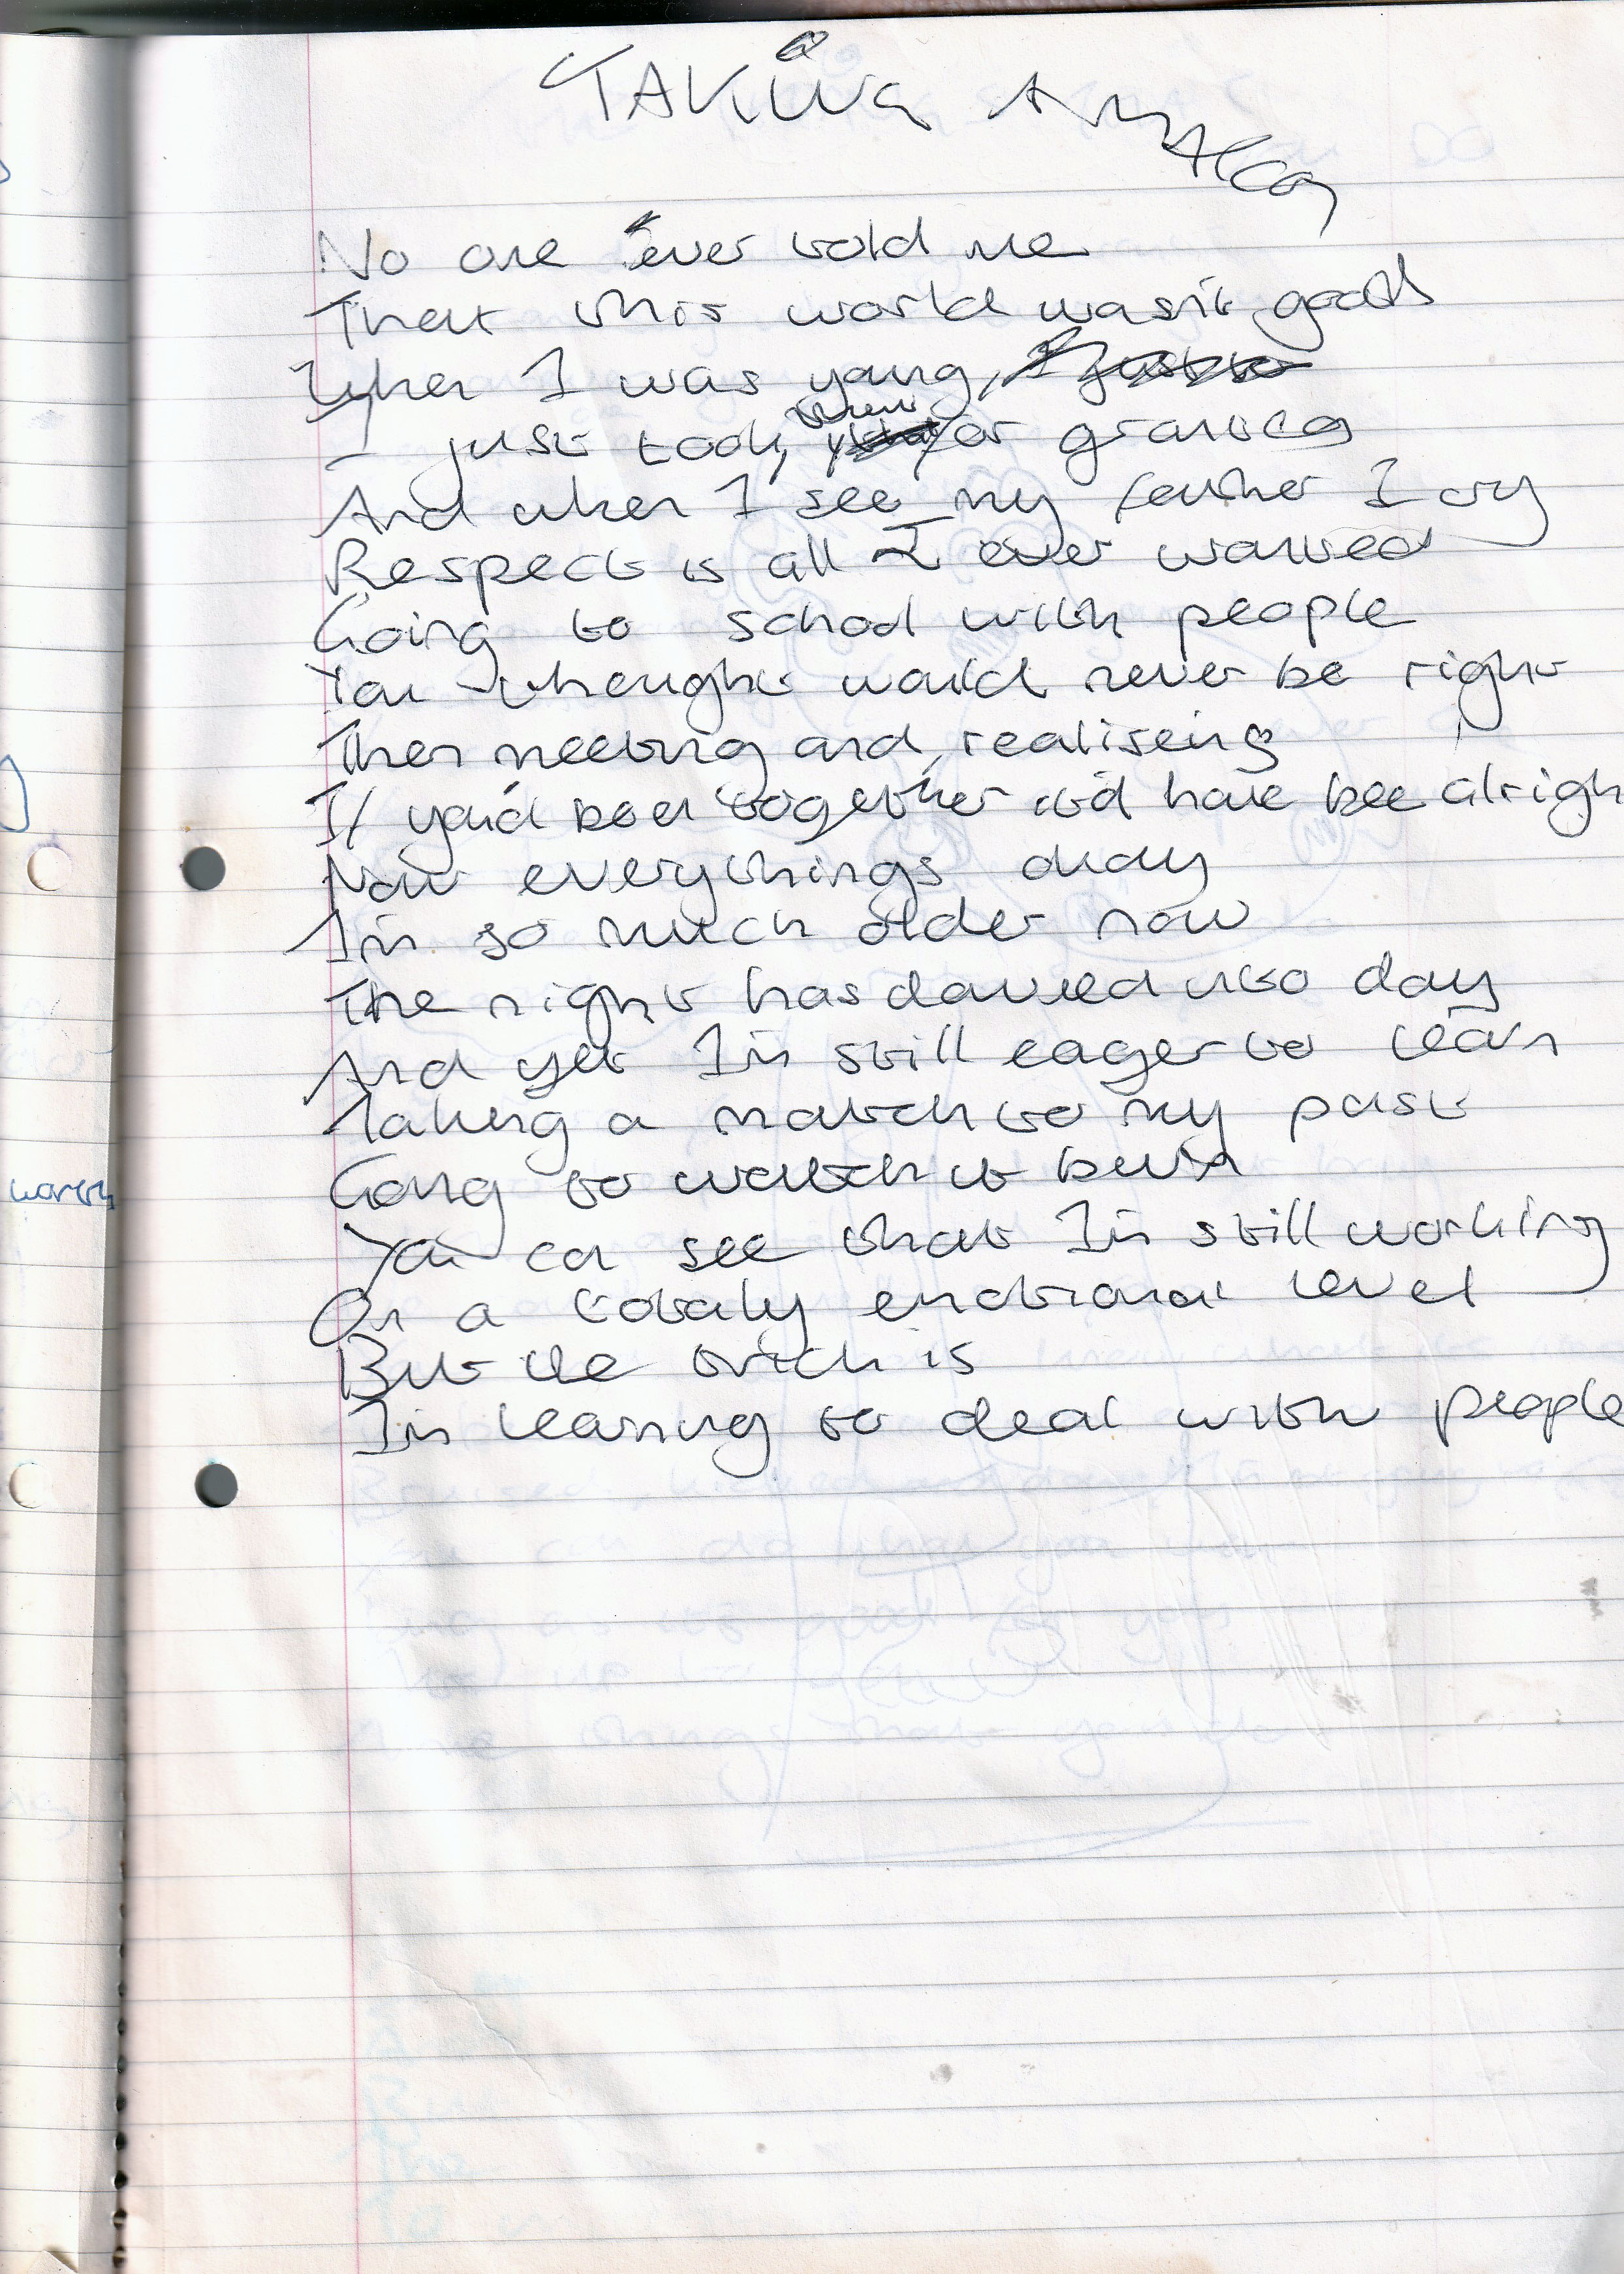 TAKING AWAY
No one ever told me
That this world wasn't good
When I was young,
I just took them for granted
And when I see my father I cry
Respect is all I ever wanted
Going to school with people
You thought would never be right
Then meeting and realiseing
If you'd been together it'd have bee alrigh
Now everythings okay
I'm so much older now
The night has dawned into day
And yet I'm still eager to learn
Taking a match to my past
Going to watch it burn
You can see that I'm still working
On a totaly emotional level
But the trick is
I'm learning to deal with people
worth